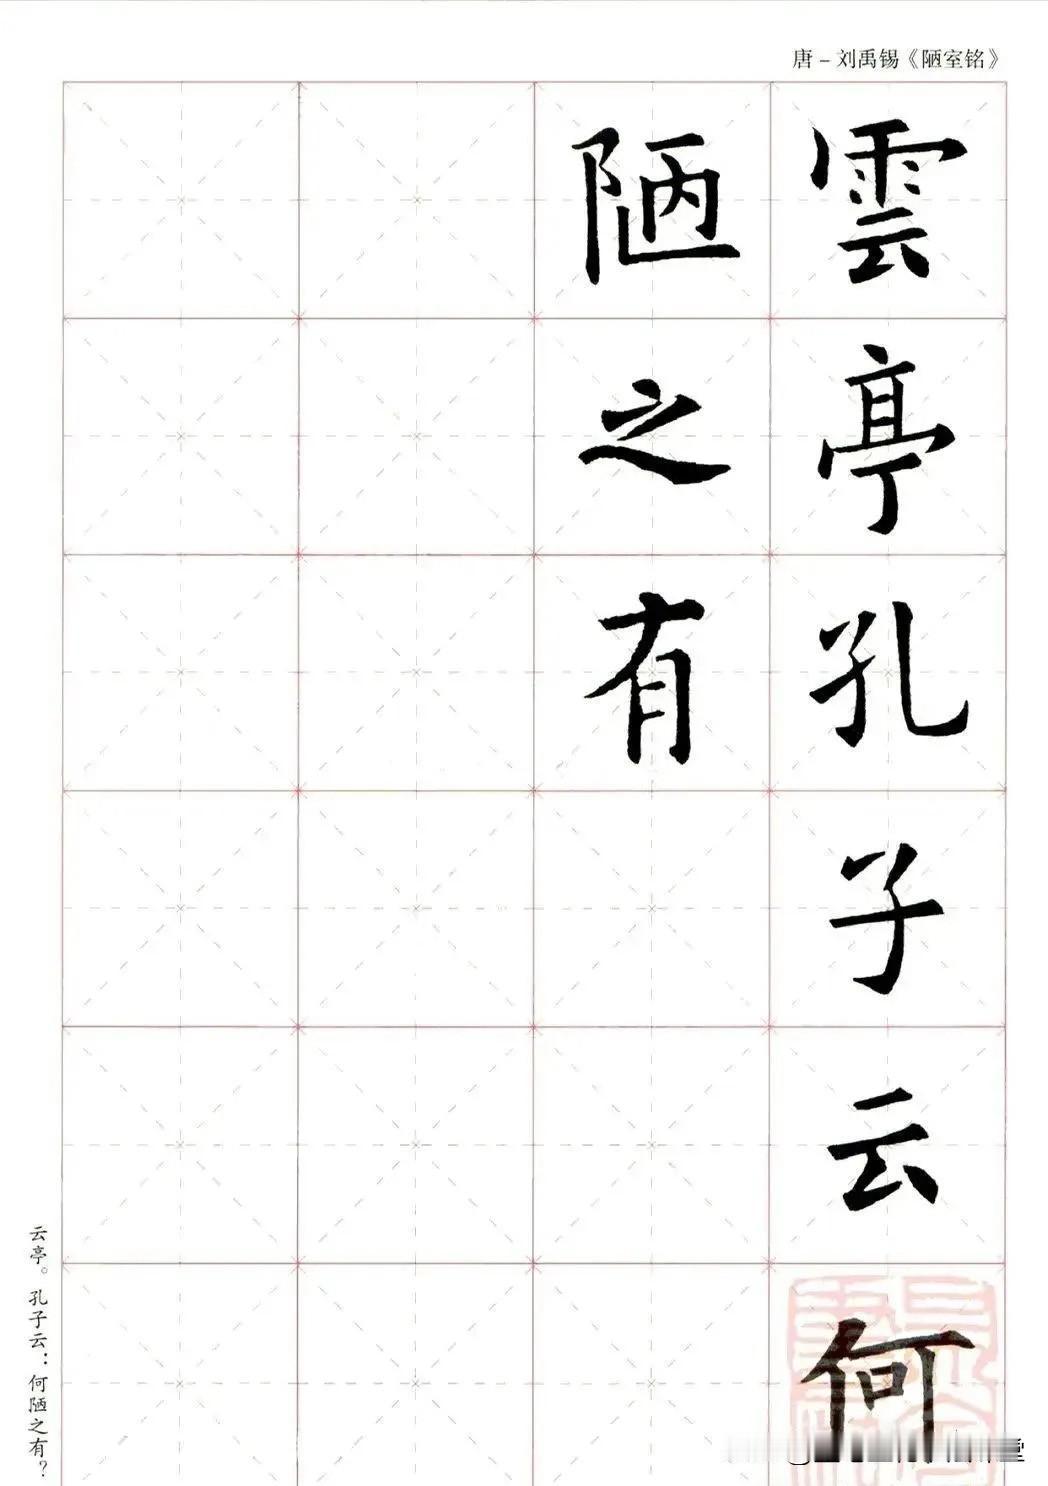 唐－刘禹锡《陋室铭》
雲亭孔子云何
陋之有
云亭。孔子云：何陋之有？